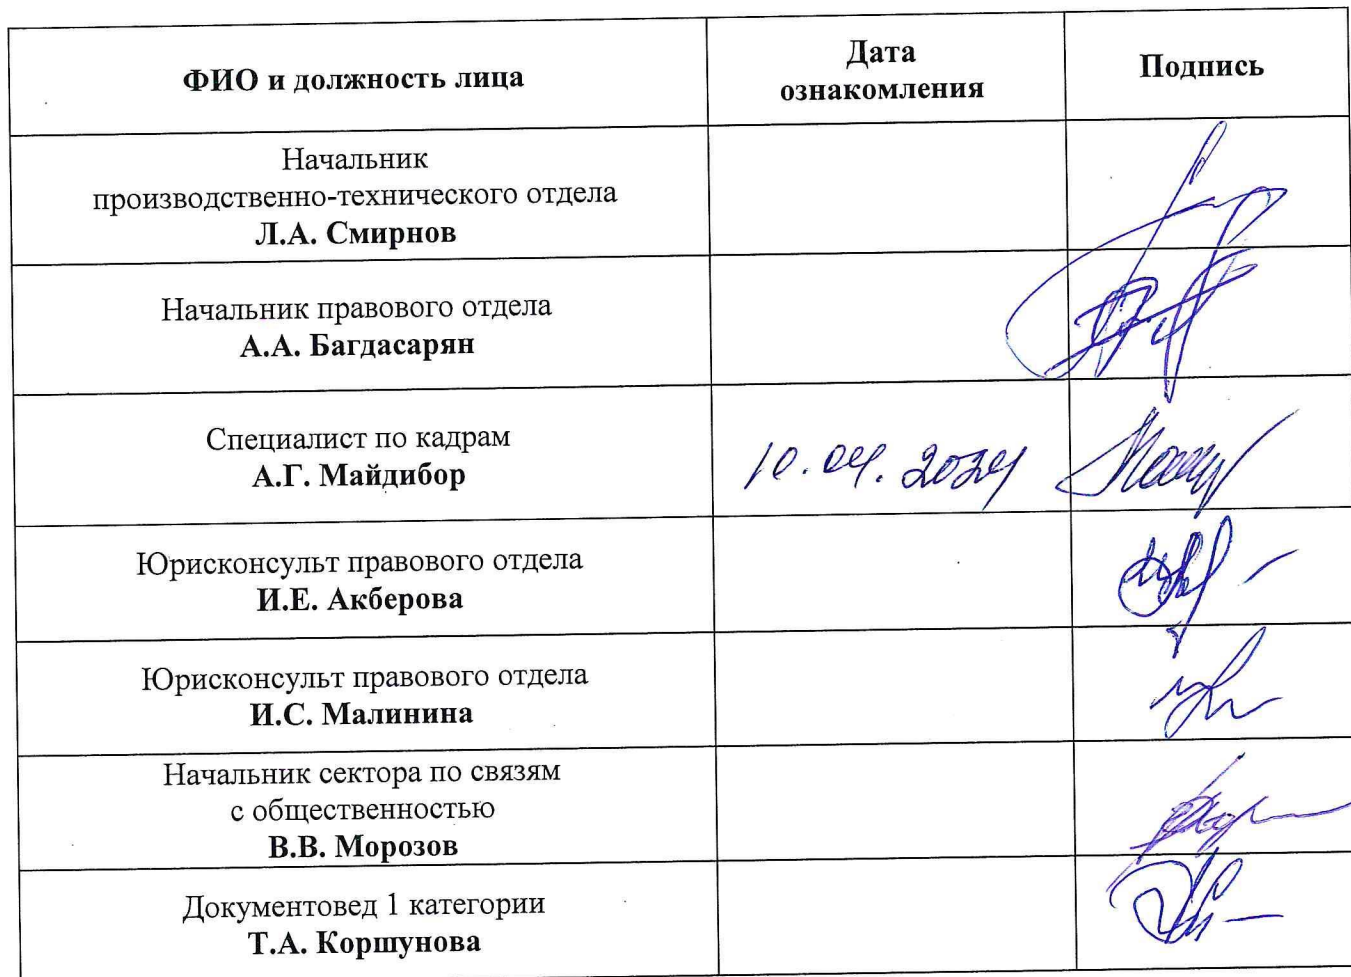 ФИО и должность лица
Дата
ознакомления
Подпись
Начальник
производственно-технического отдела
Л.А. Смирнов
Начальник правового отдела
А.А. Багдасарян
Специалист по кадрам
А.Г. Майдибор
10.04.2024
Юрисконсульт правового отдела
И.Е. Акберова
Юрисконсульт правового отдела
И.С. Малинина
Начальник сектора по связям
с общественностью
В.В. Морозов
Документовед 1 категории
Т.А. Коршунова